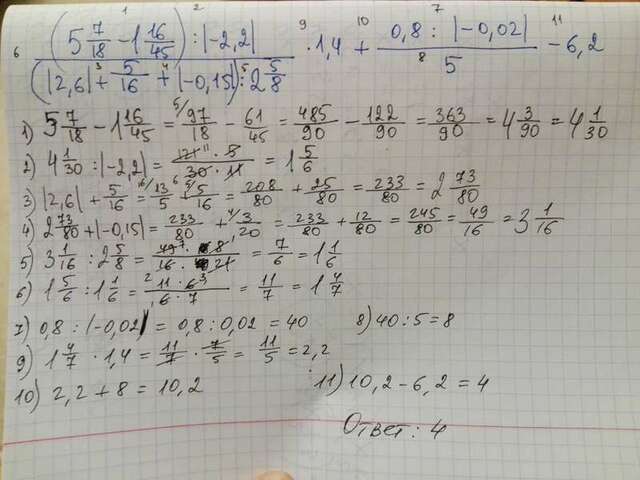 6 ((5 7/18 - 1 16/45) : |-2,2|) / ((|2,6| + 5/16 + |-0,15|) : 2 5/8) · 1,4 + (0,8 : |-0,02|) / 5 - 6,2
1) 5 7/18 - 1 16/45 = 5/ 97/18 - 61/45 = 485/90 - 122/90 = 363/90 = 4 3/90 = 4 1/30
2) 4 1/30 : |-2,2| = 121 11 · 5 / 30 · 11 = 1 5/6
3) |2,6| + 5/16 = 16/ 13/5 + 5/ 5/16 = 208/80 + 25/80 = 233/80 = 2 73/80
4) 2 73/80 + |-0,15| = 233/80 + 4/ 3/20 = 233/80 + 12/80 = 245/80 = 49/16 = 3 1/16
5) 3 1/16 : 2 5/8 = 49 7 · 8 1 / 16 · 21 = 7/6 = 1 1/6
6) 1 5/6 : 1 1/6 = 11 · 6 / 6 · 7 = 11/7 = 1 4/7
7) 0,8 : |-0,02| = 0,8 : 0,02 = 40 8) 40 : 5 = 8
9) 1 4/7 · 1,4 = 11/7 · 7/5 = 11/5 = 2,2
10) 2,2 + 8 = 10,2 11) 10,2 - 6,2 = 4
Ответ: 4